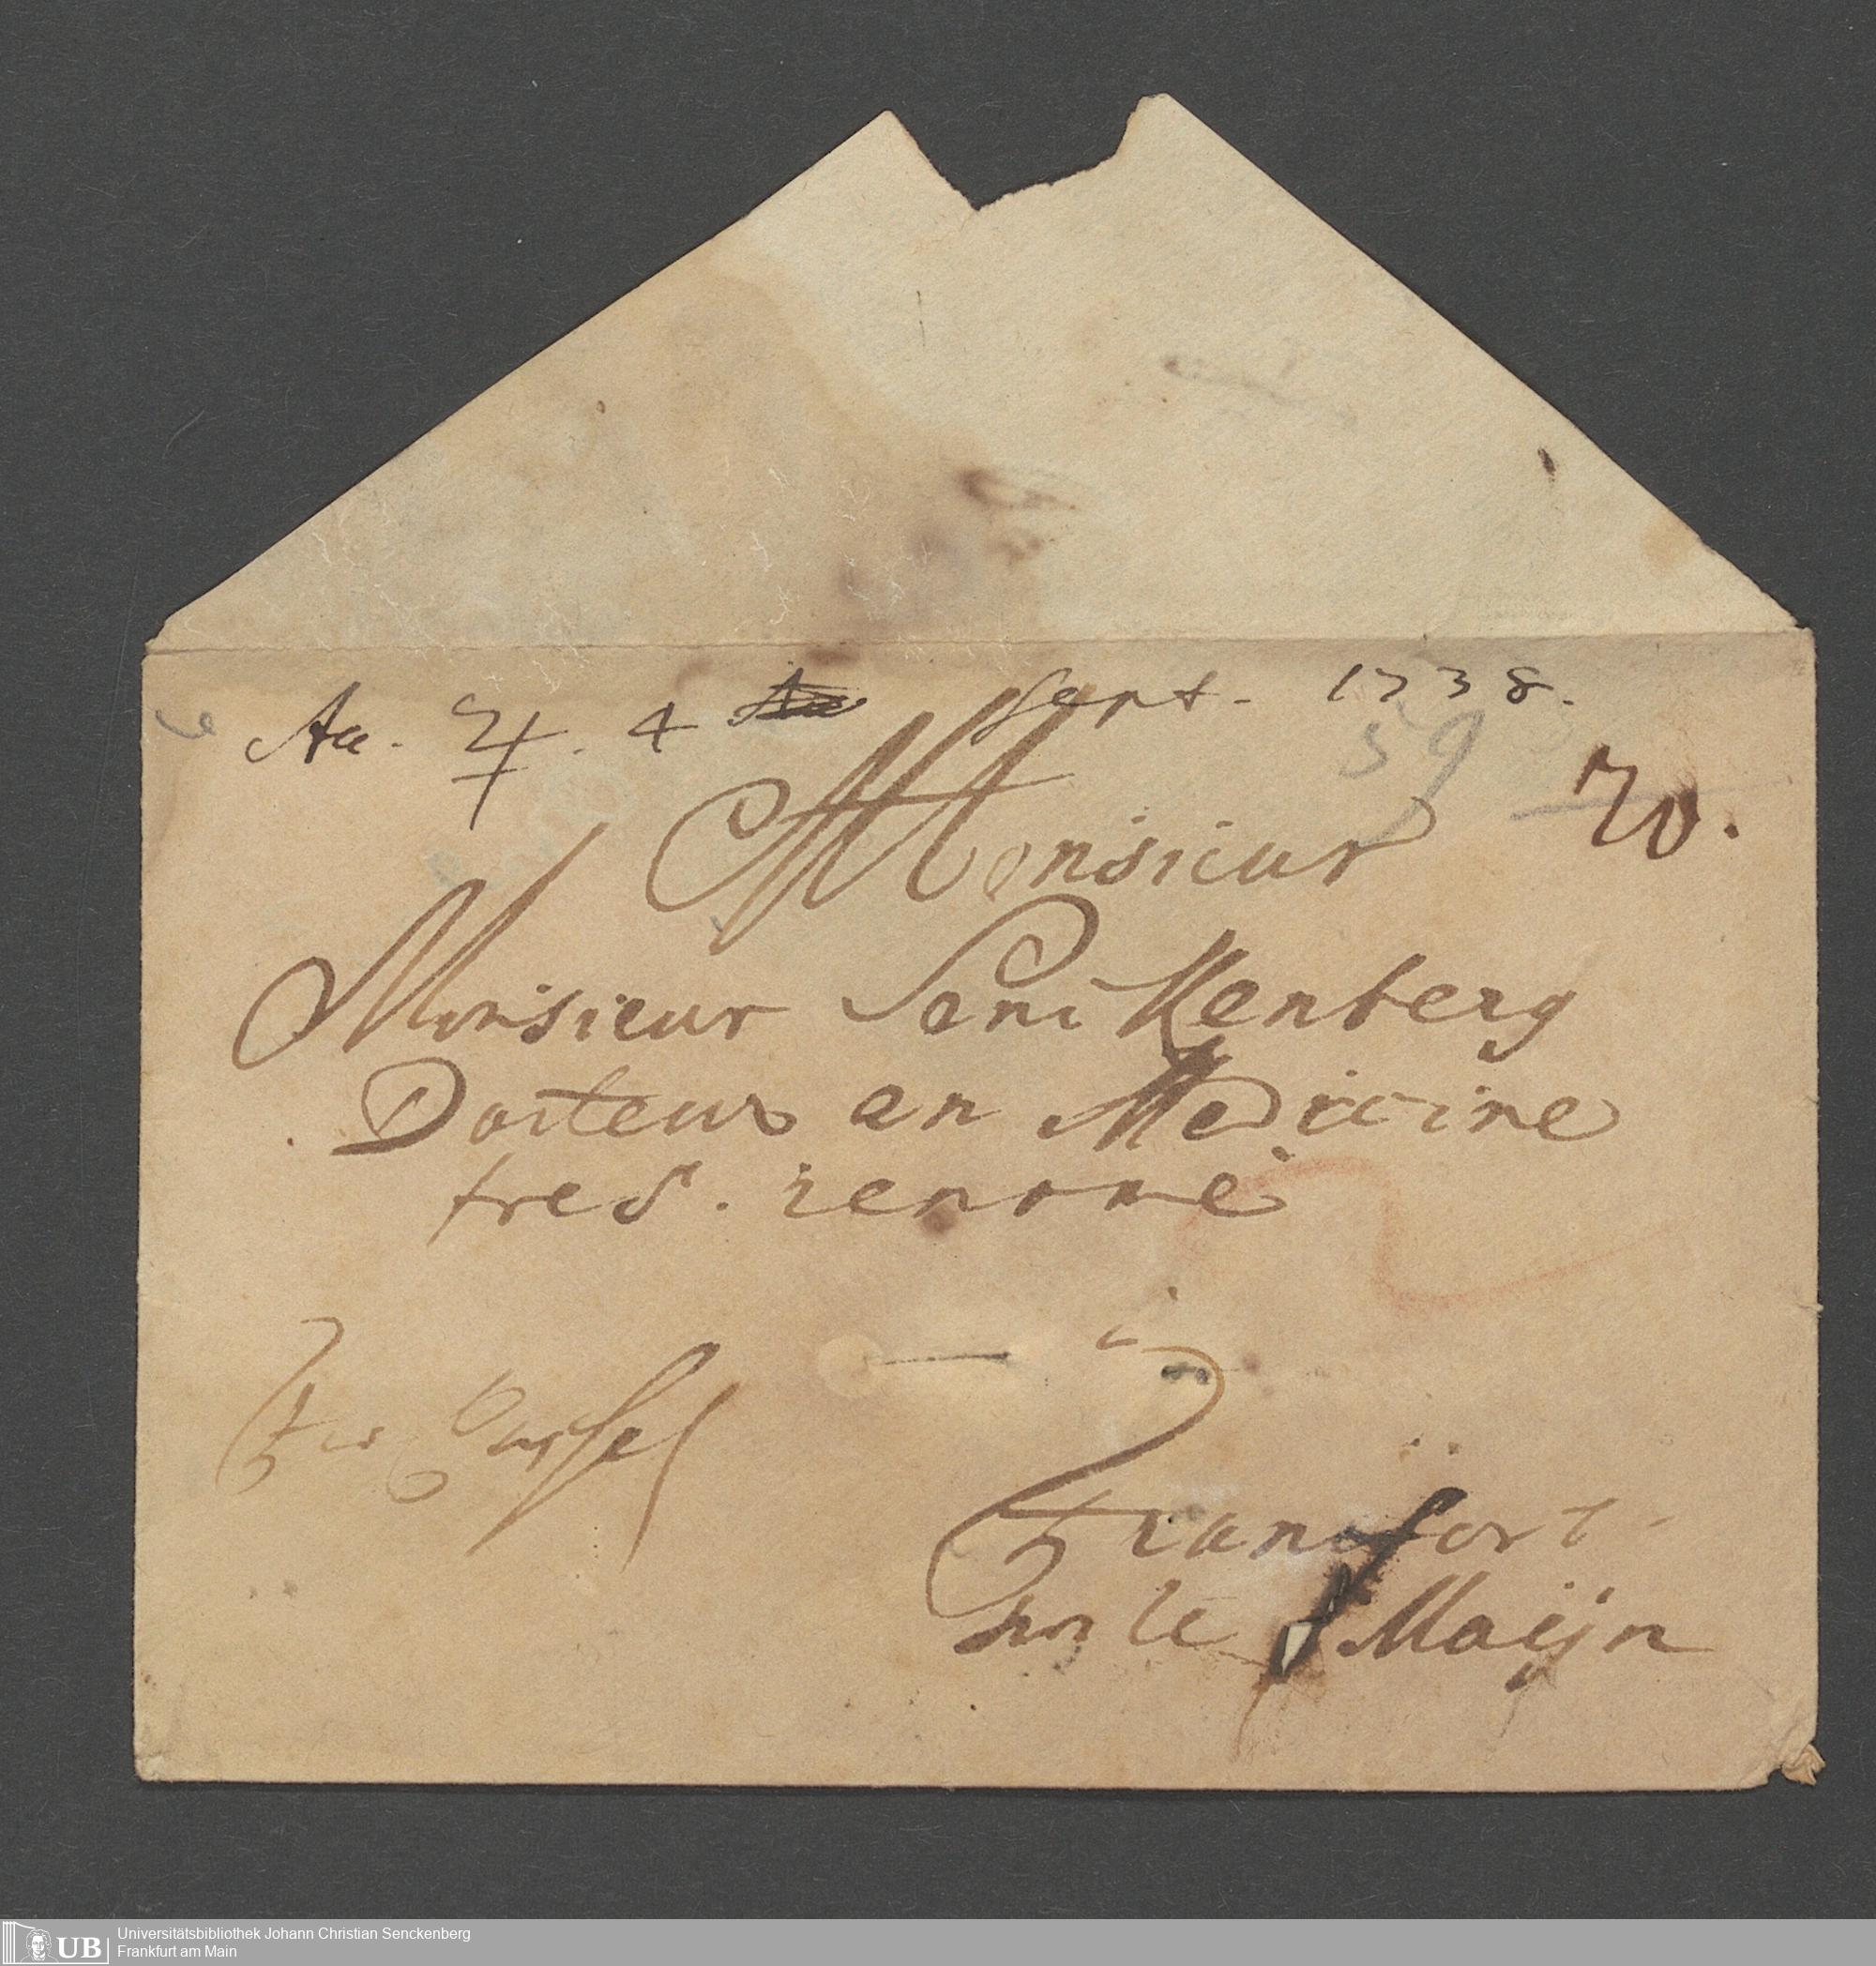 Aa. ♃. 4 Sept. 1738.
59
70.
Monsieur
Monsieur Senckenberg
Docteur en Medicine
tres. renomé
à
Francfort
sur le Maijn
UB Universitätsbibliothek Johann Christian Senckenberg
Frankfurt am Main